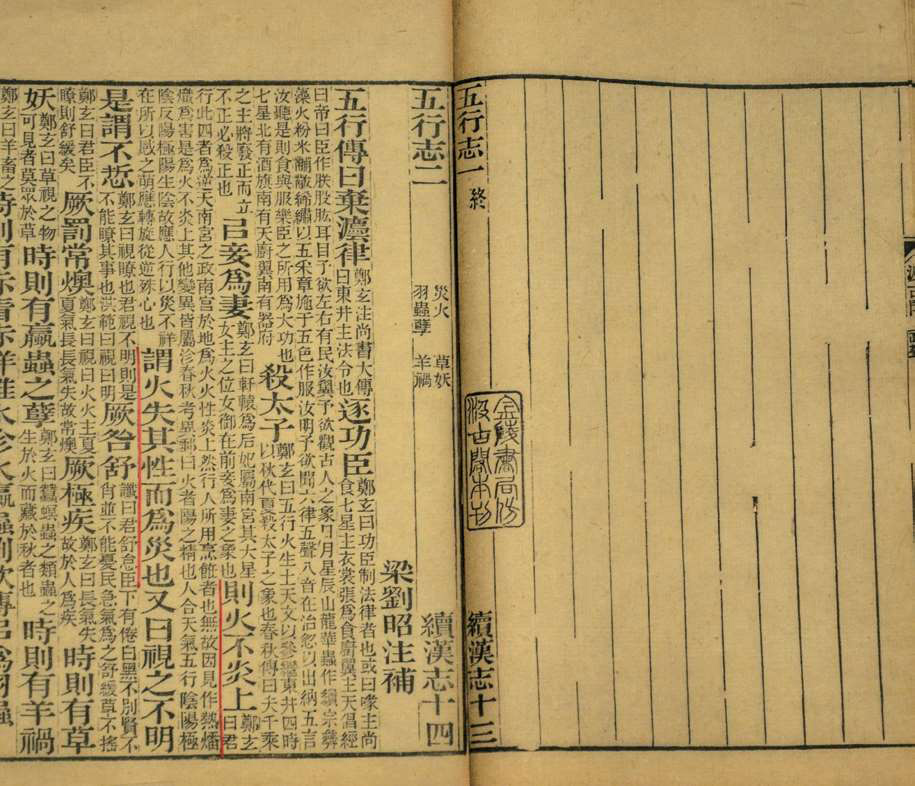 五行志一 終 續漢志十三
金陵書局仿
汲古閣本刊
五行志二 災火 草妖 羽蟲孽 羊禍 續漢志十四
梁劉昭注補
五行傳曰棄灋律鄭玄注尚書大傳曰東井主法令也逐功臣鄭玄曰功臣制法律者也或曰喙主尚食七星主衣裳張爲食廚翼主天倡經
曰帝曰臣作朕股肱耳目予欲左右有民汝翼予欲觀古人之象日月星辰山龍華蟲作繢宗彝
藻火粉米黼黻絺繡以五采章施于五色作服汝明予欲聞六律五聲八音在治忽以出納五言
汝聽是則食與服樂臣之所用爲大功也七星北有酒旗南有天廚翼南有器府殺太子鄭玄曰五行火生土天文以參繼東井四時以秋代夏殺太子之象也春秋傳曰夫千乘
之主將廢正而立不正必殺正也㠯妾爲妻鄭玄曰軒轅爲后妃屬南宮其大星女主之位女御在前妾爲妻之象也則火不炎上鄭玄曰君
行此四者爲逆天南宮之政南宮於地爲火火性炎上然行人所用烹飪者也無故因見作熱燔
熾爲害是爲火不炎上其他變異皆屬沴春秋考異郵曰火者陽之精也人合天氣五行陰陽極
陰反陽極陽生陰故應人行以災不祥在所以感之萌應轉旋從逆殊心也謂火失其性而爲災也又曰視之不明
是謂不悊鄭玄曰視瞭也君視不明則是不能瞭其事也洪範曰視曰明厥咎舒讖曰君舒怠臣下有倦白黑不別賢不肖並不能憂民急氣爲之舒緩草不搖
鄭玄曰君臣不瞭則舒緩矣厥罰常燠鄭玄曰視曰火火主夏夏氣長長氣失故常燠厥極疾鄭玄曰長氣失故於人爲疾時則有草
妖鄭玄曰草視之物可見者莫眾於草時則有蠃蟲之孽鄭玄曰蠶螟蟲之類蟲之生於火而藏於秋者也時則有羊禍
鄭玄曰羊畜之時則有赤眚赤祥惟水沴火蠃蟲劉歆傳㠯爲羽蟲